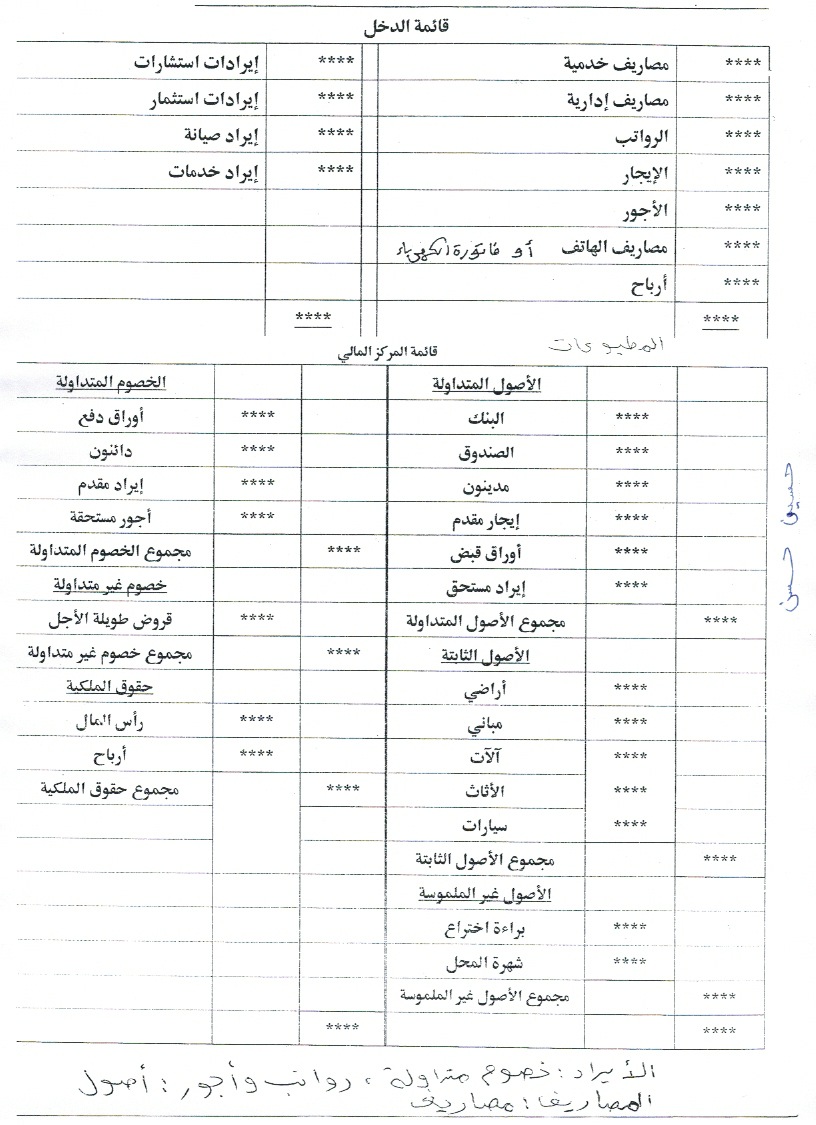 قائمة الدخل
**** مصاريف خدمية **** إيرادات استشارات
**** مصاريف إدارية **** إيرادات استثمار
**** الرواتب **** إيراد صيانة
**** الإيجار **** إيراد خدمات
**** الأجور
**** مصاريف الهاتف أو فاتورة الكهرباء
**** أرباح
**** ****
المطبوعات
قائمة المركز المالي
الأصول المتداولة الخصوم المتداولة
**** البنك **** أوراق دفع
**** الصندوق **** دائنون
**** مدينون **** إيراد مقدم
**** إيجار مقدم **** أجور مستحقة
**** أوراق قبض **** مجموع الخصوم المتداولة
**** إيراد مستحق خصوم غير متداولة
**** مجموع الأصول المتداولة **** قروض طويلة الأجل
الأصول الثابتة **** مجموع خصوم غير متداولة
**** أراضي حقوق الملكية
**** مباني **** رأس المال
**** آلآت **** أرباح
**** الأثاث **** مجموع حقوق الملكية
**** سيارات
**** مجموع الأصول الثابتة
الأصول غير الملموسة
**** براءة اختراع
**** شهرة المحل
**** مجموع الأصول غير الملموسة
**** ****
الأيراد: خصوم متداولة، رواتب وأجور: أصول
المصاريف: مصاريف
حسين حسن